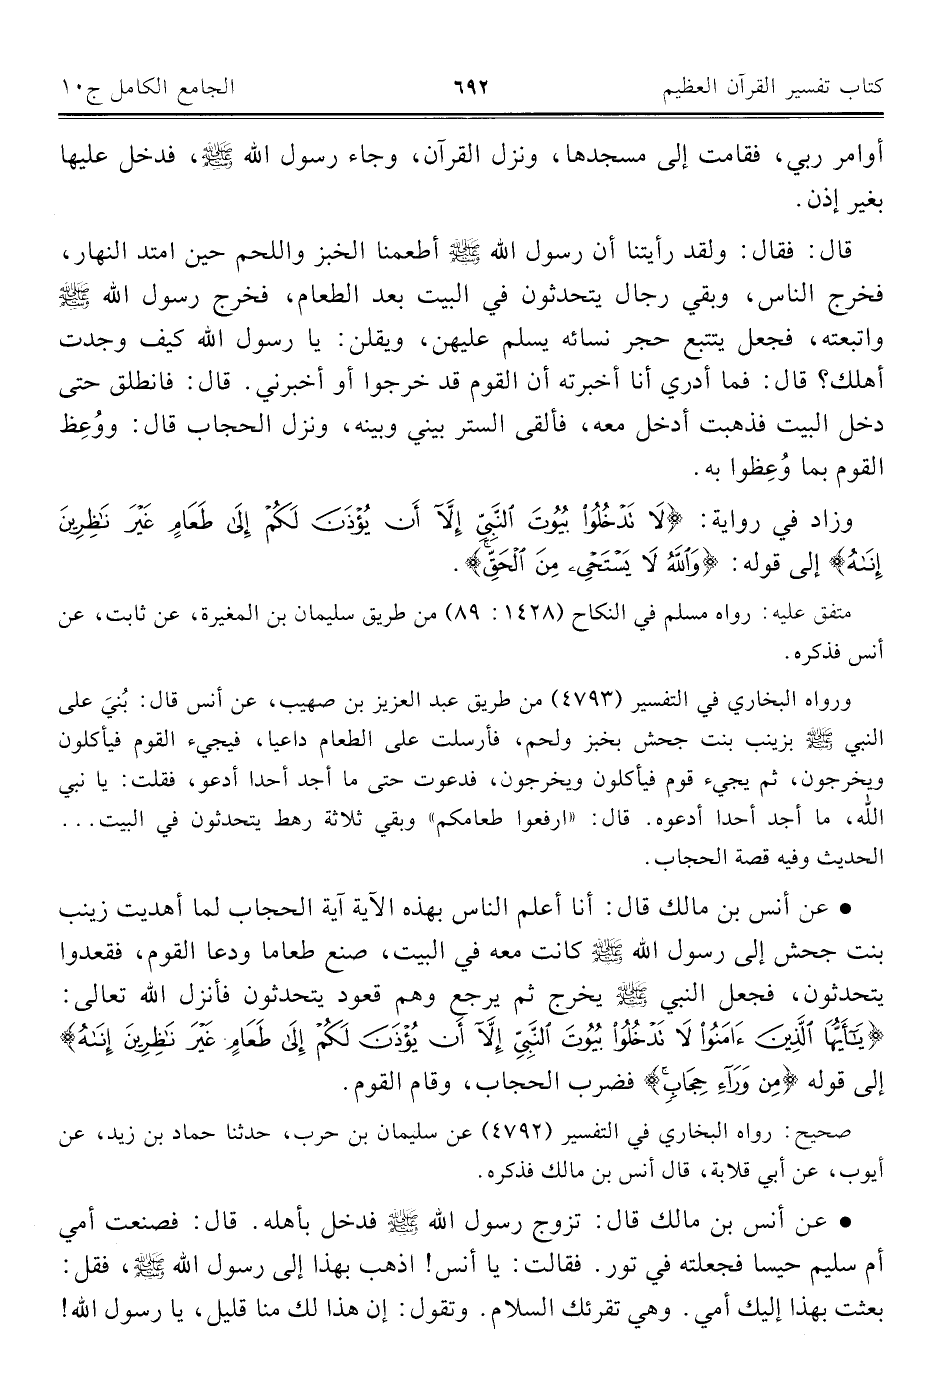 كتاب تفسير القرآن العظيم ٦٩٢ الجامع الكامل ج١٠
أوامر ربي، فقامت إلى مسجدها، ونزل القرآن، وجاء رسول الله ﷺ، فدخل عليها
بغير إذن.
قال: فقال: ولقد رأيتنا أن رسول الله ﷺ أطعمنا الخبز واللحم حين امتد النهار،
فخرج الناس، وبقي رجال يتحدثون في البيت بعد الطعام، فخرج رسول الله ﷺ
واتبعته، فجعل يتتبع حجر نسائه يسلم عليهن، ويقلن: يا رسول الله كيف وجدت
أهلك؟ قال: فما أدري أنا أخبرته أن القوم قد خرجوا أو أخبرني. قال: فانطلق حتى
دخل البيت فذهبت أدخل معه، فألقى الستر بيني وبينه، ونزل الحجاب قال: ووُعِظ
القوم بما وُعِظوا به.
وزاد في رواية: ﴿لَا تَدْخُلُوا۟ بُيُوتَ ٱلنَّبِىِّ إِلَّآ أَن يُؤْذَنَ لَكُمْ إِلَىٰ طَعَامٍ غَيْرَ نَـٰظِرِينَ
إِنَىٰهُ﴾ إلى قوله: ﴿وَٱللَّهُ لَا يَسْتَحْىِۦ مِنَ ٱلْحَقِّ﴾.
متفق عليه: رواه مسلم في النكاح (١٤٢٨: ٨٩) من طريق سليمان بن المغيرة، عن ثابت، عن
أنس فذكره.
ورواه البخاري في التفسير (٤٧٩٣) من طريق عبد العزيز بن صهيب، عن أنس قال: بُنيَ على
النبي ﷺ بزينب بنت جحش بخبز ولحم، فأرسلت على الطعام داعيا، فيجيء القوم فيأكلون
ويخرجون، ثم يجيء قوم فيأكلون ويخرجون، فدعوت حتى ما أجد أحدا أدعو، فقلت: يا نبي
الله، ما أجد أحدا أدعوه. قال: «ارفعوا طعامكم» وبقي ثلاثة رهط يتحدثون في البيت...
الحديث وفيه قصة الحجاب.
• عن أنس بن مالك قال: أنا أعلم الناس بهذه الآية آية الحجاب لما أهديت زينب
بنت جحش إلى رسول الله ﷺ كانت معه في البيت، صنع طعاما ودعا القوم، فقعدوا
يتحدثون، فجعل النبي ﷺ يخرج ثم يرجع وهم قعود يتحدثون فأنزل الله تعالى:
﴿يَـٰٓأَيُّهَا ٱلَّذِينَ ءَامَنُوا۟ لَا تَدْخُلُوا۟ بُيُوتَ ٱلنَّبِىِّ إِلَّآ أَن يُؤْذَنَ لَكُمْ إِلَىٰ طَعَامٍ غَيْرَ نَـٰظِرِينَ إِنَىٰهُ﴾
إلى قوله ﴿مِن وَرَآءِ حِجَابٍ ۚ﴾ فضرب الحجاب، وقام القوم.
صحيح: رواه البخاري في التفسير (٤٧٩٢) عن سليمان بن حرب، حدثنا حماد بن زيد، عن
أيوب، عن أبي قلابة، قال أنس بن مالك فذكره.
• عن أنس بن مالك قال: تزوج رسول الله ﷺ فدخل بأهله. قال: فصنعت أمي
أم سليم حيسا فجعلته في تور. فقالت: يا أنس! اذهب بهذا إلى رسول الله ﷺ، فقل:
بعثت بهذا إليك أمي. وهي تقرئك السلام. وتقول: إن هذا لك منا قليل، يا رسول الله!